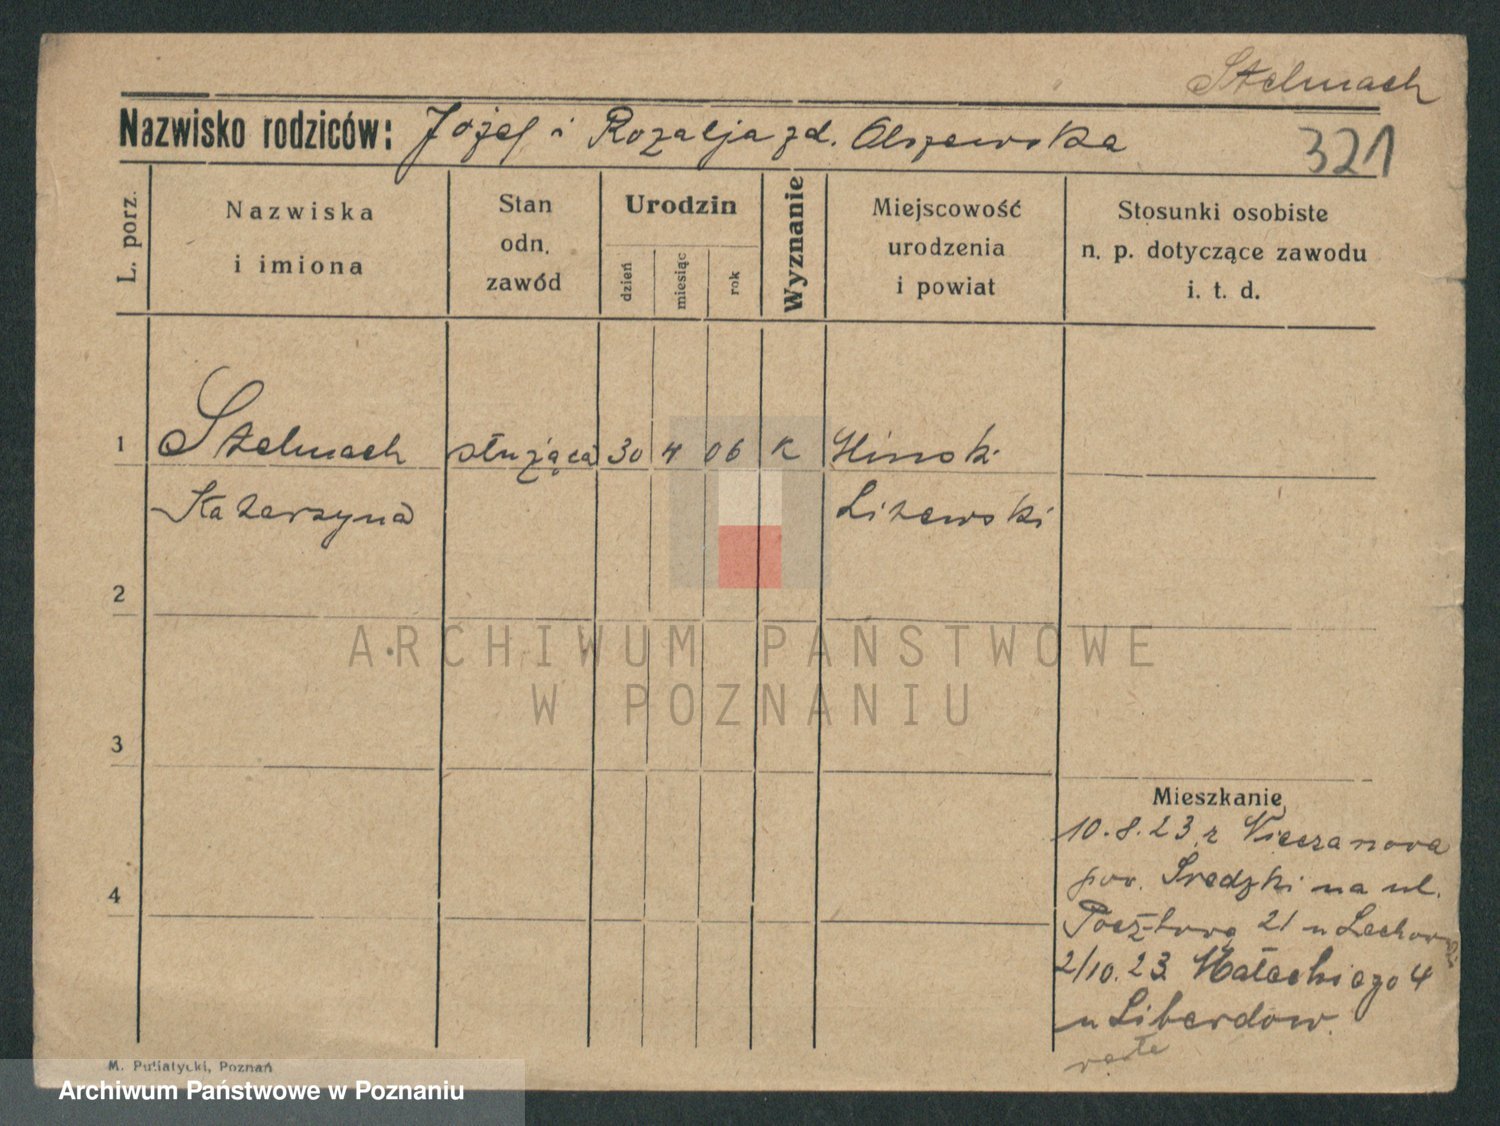 Stelmach
Nazwisko rodziców: Józef i Rozalja zd. Olszewska
321
L. porz.
Nazwiska
i imiona
Stan
odn.
zawód
Urodzin
dzień
miesiąc
rok
Wyznanie
Miejscowość
urodzenia
i powiat
Stosunki osobiste
n. p. dotyczące zawodu
i. t. d.
1 Stelmach służąca 30 4 06 K Minsk
Katarzyna Litewski
2
ARCHIWUM PAŃSTWOWE
W POZNANIU
3
Mieszkanie
10.8.23 z
pow. Sredzki na ul.
4
Pocztową 21 u
2/10.23 Małeckiego 4
u Liberdow.
M. Putiatycki, Poznań
Archiwum Państwowe w Poznaniu